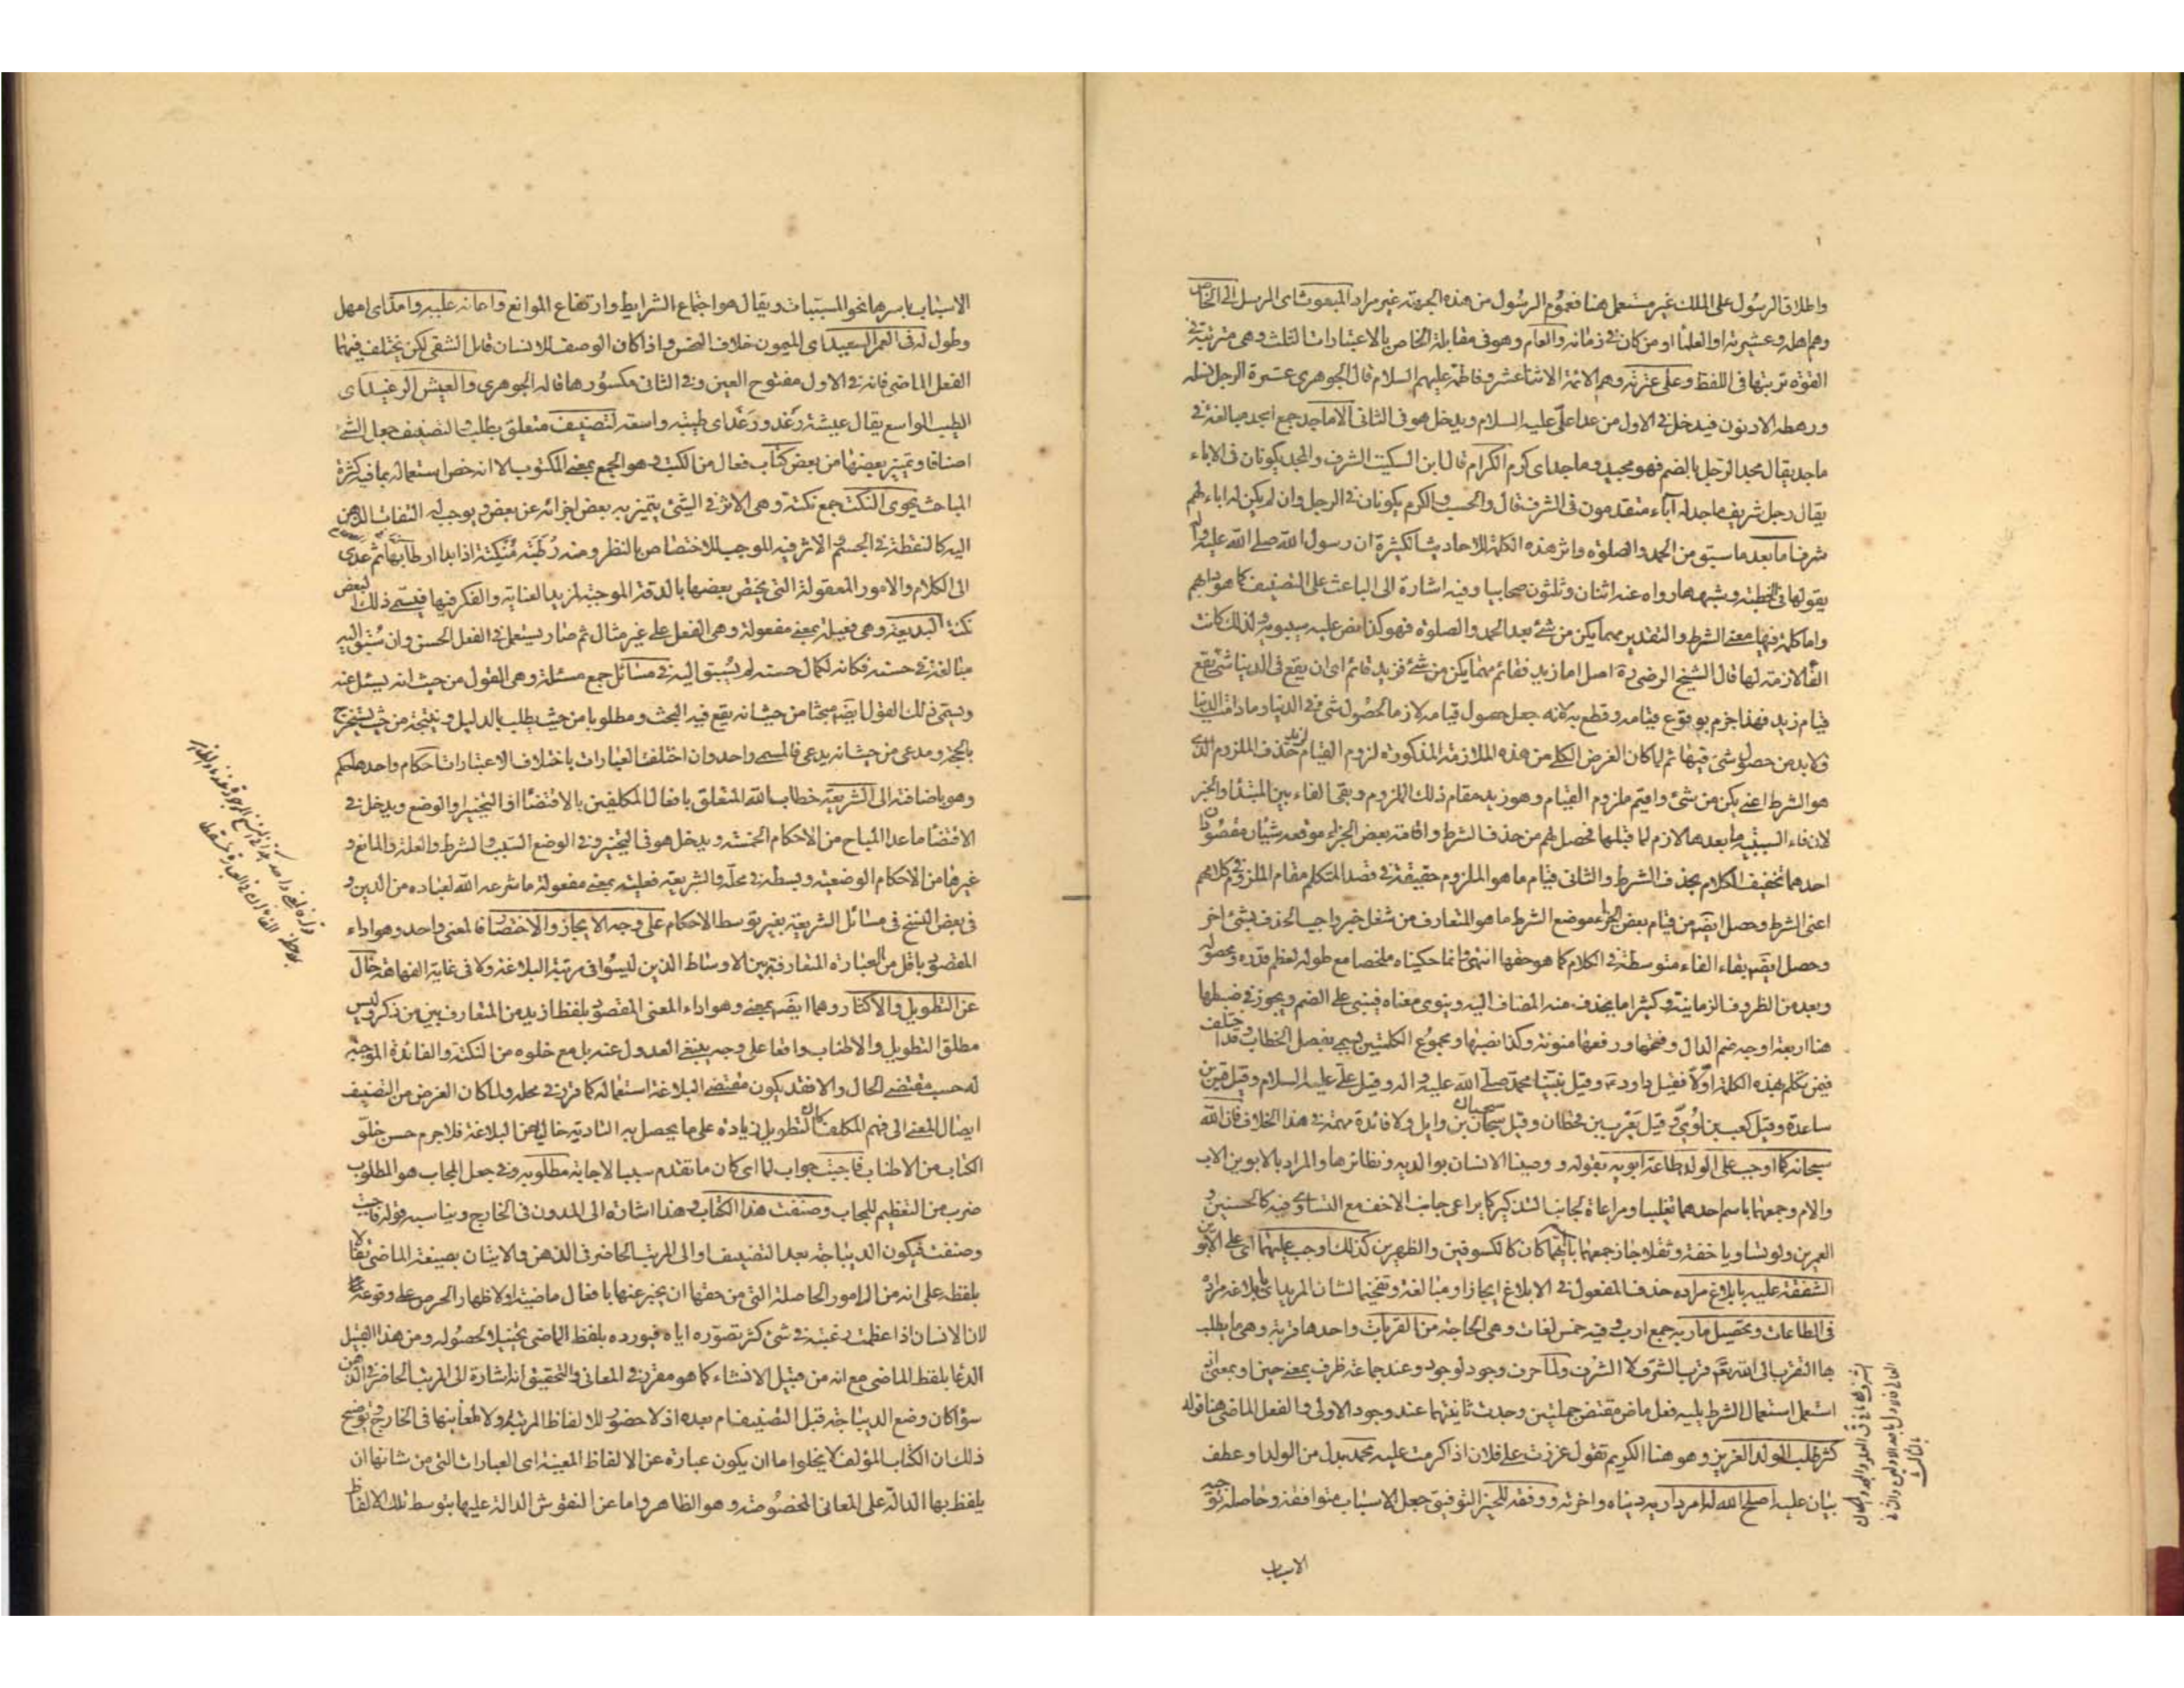 واطلاق الرسول على الملك غير مستعمل هنا فعموم الرسول من هذه الجهة غير مراد المبعوث اى المرسل الى الخاص
وهم اهله وعشيرته او العلماء او من كان فى زمانه والعام وهو فى مقابلة الخاص بالاعتبارات الثلث وهى مترتبة فى
القوة ترتبها فى اللفظ وعلى عترته وهم الائمة الاثنا عشر وفاطمة عليهم السلام قال الجوهرى عترة الرجل نسله
ورهطه الادنون فيدخل فى الاول من عدا على عليه السلام ويدخل هو فى الثانى الاماجد جمع امجد مبالغة فى
ماجد يقال مجد الرجل بالضم فهو مجيد وماجد اى كرم الكرام قال ابن السكيت الشرف والمجد يكونان فى الاباء
يقال رجل شريف ماجد له آباء متقدمون فى الشرف قال والحسب والكرم يكونان فى الرجل وان لم يكن له اباء لهم
شرف اما بعد ما سبق من الحمد والصلوة واثر هذه الكلمة للاحاديث الكثيرة ان رسول الله صلى الله عليه واله
يقولها فى الخطبة وشبهها رواه عنه اثنان وثلثون صحابيا وفيه اشارة الى الباعث على التصنيف كما هو دابهم
واما كلمة فيها معنى الشرط والتقدير مهما يكن من شئ بعد الحمد والصلوة فهو كذا نص عليه سيبويه ولذلك كانت
الفاء لازمة لها قال الشيخ الرضى ره اصل اما زيد فقائم مهما يكن من شئ فزيد قائم اى ان يقع فى الدنيا شئ يقع
قيام زيد فهذا جزم بوقوع قيامه وقطع به لانه جعل حصول قيامه لازما لحصول شئ فى الدنيا وما دامت الدنيا
ولا بد من حصول شئ فيها ثم لما كان الغرض الكلى من هذه الملازمة المذكورة لزوم القيام لزيد حذف الملزوم الذى
هو الشرط اعنى يكن من شئ واقيم ملزوم القيام وهو زيد مقام ذلك الملزوم وبقى الفاء بين المبتدأ والخبر
لان فاء السببية ما بعدها لازم لما قبلها فحصل لهم من حذف الشرط واقامة بعض الجزاء موقعه شيئان مقصودان
احدهما تخفيف الكلام بحذف الشرط والثانى قيام ما هو الملزوم حقيقة فى قصد المتكلم مقام الملزوم فى كلامهم
اعنى الشرط وحصل ايضا من قيام بعض الجزاء موضع الشرط ما هو المتعارف من شغل حيز واجب الحذف بشئ اخر
وحصل ايضا بقاء الفاء متوسطة فى الكلام كما هو حقها انتهى وانما حكيناه ملخصا مع طوله لعظم قدره ومحصوله
وبعد من الظروف الزمانية وكثيرا ما يحذف منه المضاف اليه وينوى معناه فيبنى على الضم ويجوز فى ضبطها
هنا اربعة اوجه ضم الدال وفتحها ورفعها منونة وكذا نصبها ومجموع الكلمتين يسمى بفصل الخطاب وقد اختلف
فيمن تكلم بهذه الكلمة اولا فقيل داود ع وقيل نبينا محمد صلى الله عليه واله وقيل على عليه السلام وقيل قس بن
ساعدة وقيل كعب بن لوى وقيل يعرب بن قحطان وقيل سحبان بن وايل ولا فائدة مهمة فى هذا الخلاف فان الله
سبحانه كما اوجب على الولد طاعة ابويه بقوله ووصينا الانسان بوالديه ونظائرها والمراد بالابوين الاب
والام وجمعهما باسم احدهما تغليبا ومراعاة لجانب التذكير كما يراعى جانب الاخف مع التساوى فيه كالحسنين و
العمرين ولو تساويا خفة وثقلا جاز جمعهما بايهما كان كالكسوفين والظهرين كذلك اوجب عليهما اى على الابوين
الشفقة عليه بابلاغ مراده حذف المفعول فى الابلاغ ايجازا ومبالغة وتفخيما لشان المريد اى بابلاغه مراده
فى الطاعات وتحصيل ماربه جمع ارب وفيه خمس لغات وهى الحاجة من القربات واحدها قربة وهى ما يطلب
بها التقرب الى الله تعم قرب الشرف لا الشرف ولما حرف وجود لوجود وعند جماعة ظرف بمعنى حين او بمعنى اذ
استعمل استعمال الشرط يليه فعل ماض مقتض جملتين وجدت ثانيتهما عند وجود الاولى والفعل الماضى هنا قوله
كثر طلب الولد العزيز وهو هنا الكريم تقول عززت على فلان اذا كرمت عليه محمد بدل من الولد او عطف
بيان عليه اصلح الله له امر داريه دنياه واخرته ووفقه للخير التوفيق جعل الاسباب متوافقة وحاصله توجيه
الاسباب
الاسباب باسرها نحو المسببات ويقال هو اجتماع الشرايط وارتفاع الموانع واعانه عليه وامد اى امهل
وطول له فى العمر السعيد اى الميمون خلاف النحس واذا كان الوصف للانسان قابل الشقى لكن يختلف فيهما
الفعل الماضى فانه فى الاول مفتوح العين وفى الثانى مكسورها قاله الجوهرى والعيش الرغيد اى
الطيب الواسع يقال عيشة رغد ورغد اى طيبة واسعة لتصنيف متعلق بطلب والتصنيف جعل الشئ
اصنافا وتميز بعضها من بعض كتاب فعال من الكتب وهو الجمع بمعنى المكتوب الا انه خص استعماله بما فيه كثرة
المباحث يحوى النكت جمع نكتة وهى الاثر فى الشئ يتميز به بعض اجزائه عن بعض ويوجب له التفات الذهن
اليه كالنقطة فى الجسم والاثر فيه الموجب للاختصاص بالنظر ومنه رطبة منكتة اذا بدا ارطابها ثم عدى
الى الكلام والامور المعقولة التى يختص بعضها بالدقة الموجبة لمزيد العناية والفكر فيها فيسمى ذلك البعض
نكتة البديعة وهى فعيلة بمعنى مفعولة وهى الفعل على غير مثال ثم صار يستعمل فى الفعل الحسن وان سبق اليه
مبالغة فى حسنه فكانه لكمال حسنه لم يسبق اليه فى مسائل جمع مسئلة وهى القول من حيث انه يسئل عنه
ويسمى ذلك القول ايضا مبحثا من حيث انه يقع فيه البحث ومطلوبا من حيث يطلب بالدليل ونتيجة من حيث يستخرج
بالحجة ومدعى من حيث انه يدعى فالمسمى واحد وان اختلفت العبارات باختلاف الاعتبارات احكام واحدها حكم
وهو باضافته الى الشريعة خطاب الله المتعلق بافعال المكلفين بالاقتضاء او التخيير او الوضع ويدخل فى
الاقتضاء ما عدا المباح من الاحكام الخمسة ويدخل هو فى التخيير وفى الوضع السبب والشرط والعلة والمانع و
غيرها من الاحكام الوضعية وبسطه فى محله والشريعة فعيلة بمعنى مفعولة ما شرعه الله لعباده من الدين و
فى بعض النسخ فى مسائل الشريعة بغير توسط الاحكام على وجه الايجاز والاختصار فالمعنى واحد وهو اداء
المقصود باقل من العبارة المتعارفة بين الاوساط الذين ليسوا فى مرتبة البلاغة ولا فى غاية الفهاهة خال
عن التطويل والاكثار وهما ايضا بمعنى وهو اداء المعنى المقصود بلفظ ازيد من المتعارف بين من ذكر وليس
مطلق التطويل والاطناب واقعا على وجه ينبغى العدول عنه بل مع خلوه من النكتة والفائدة الموجبة
له حسب مقتضى الحال والا فقد يكون مقتضى البلاغة استعماله كما قرر فى محله ولما كان الغرض من التصنيف
ايصال المعنى الى فهم المكلف كان التطويل زيادة على ما يحصل به التادية خاليا من البلاغة فلا جرم حسن خلو
الكتاب من الاطناب فاجبت جواب لما اى كان ما تقدم سببا لاجابة مطلوبه وفى جعل المجاب هو المطلوب
ضرب من التعظيم للمجاب وصنفت هذا الكتاب وهذا اشارة الى المدون فى الخارج ويناسبه قوله فاجبت
وصنفت فيكون الديباجة بعد التصنيف او الى المرتب الحاضر فى الذهن والايتان بصيغة الماضى تفالا
بلفظه على انه من الامور الحاصلة التى من حقها ان يخبر عنها بافعال ماضية او لاظهار الحرص على وقوعه
لان الانسان اذا عظمت رغبته فى شئ كثر تصوره اياه فيورده بلفظ الماضى تخييلا لحصوله ومن هذا القبيل
الدعا بلفظ الماضى مع انه من قبيل الانشاء كما هو مقرر فى المعانى والتحقيق انه اشارة الى المرتب الحاضر فى الذهن
سواء كان وضع الديباجة قبل التصنيف ام بعده اذ لا حضور للالفاظ المرتبة ولا لمعانيها فى الخارج وتوضيح
ذلك ان الكتاب المؤلف لا يخلوا اما ان يكون عبارة عن الالفاظ المعينة اى العبارات التى من شانها ان
يلفظ بها الدالة على المعانى المخصوصة وهو الظاهر واما عن النقوش الدالة عليها بتوسط تلك الالفاظ